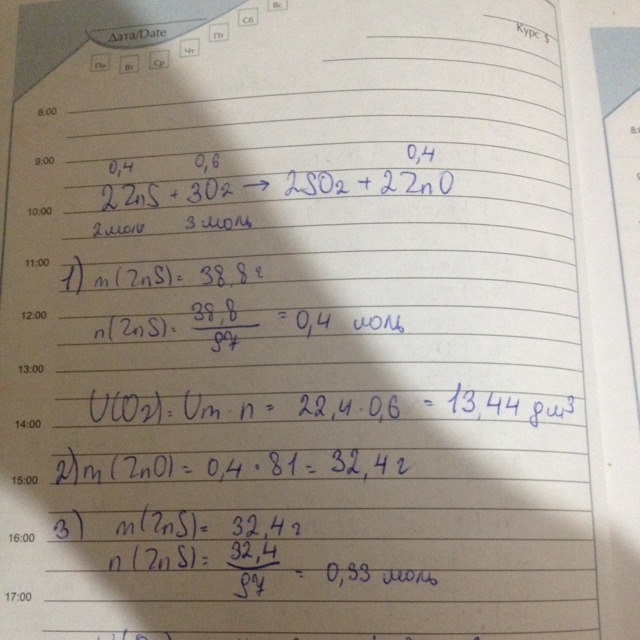 Дата/Date
Пн Вт Ср Чт Пт Сб Вс
Курс $
8:00
9:00
0,4 0,6 0,4
2ZnS + 3O2 → 2SO2 + 2ZnO
10:00
2 моль 3 моль
11:00
1) m(ZnS) = 38,8 г
12:00
n(ZnS) = 38,8 / 97 = 0,4 моль
13:00
V(O2) = Vm · n = 22,4 · 0,6 = 13,44 дм³
14:00
2) m(ZnO) = 0,4 · 81 = 32,4 г
15:00
3) m(ZnS) = 32,4 г
16:00
n(ZnS) = 32,4 / 97 = 0,33 моль
17:00